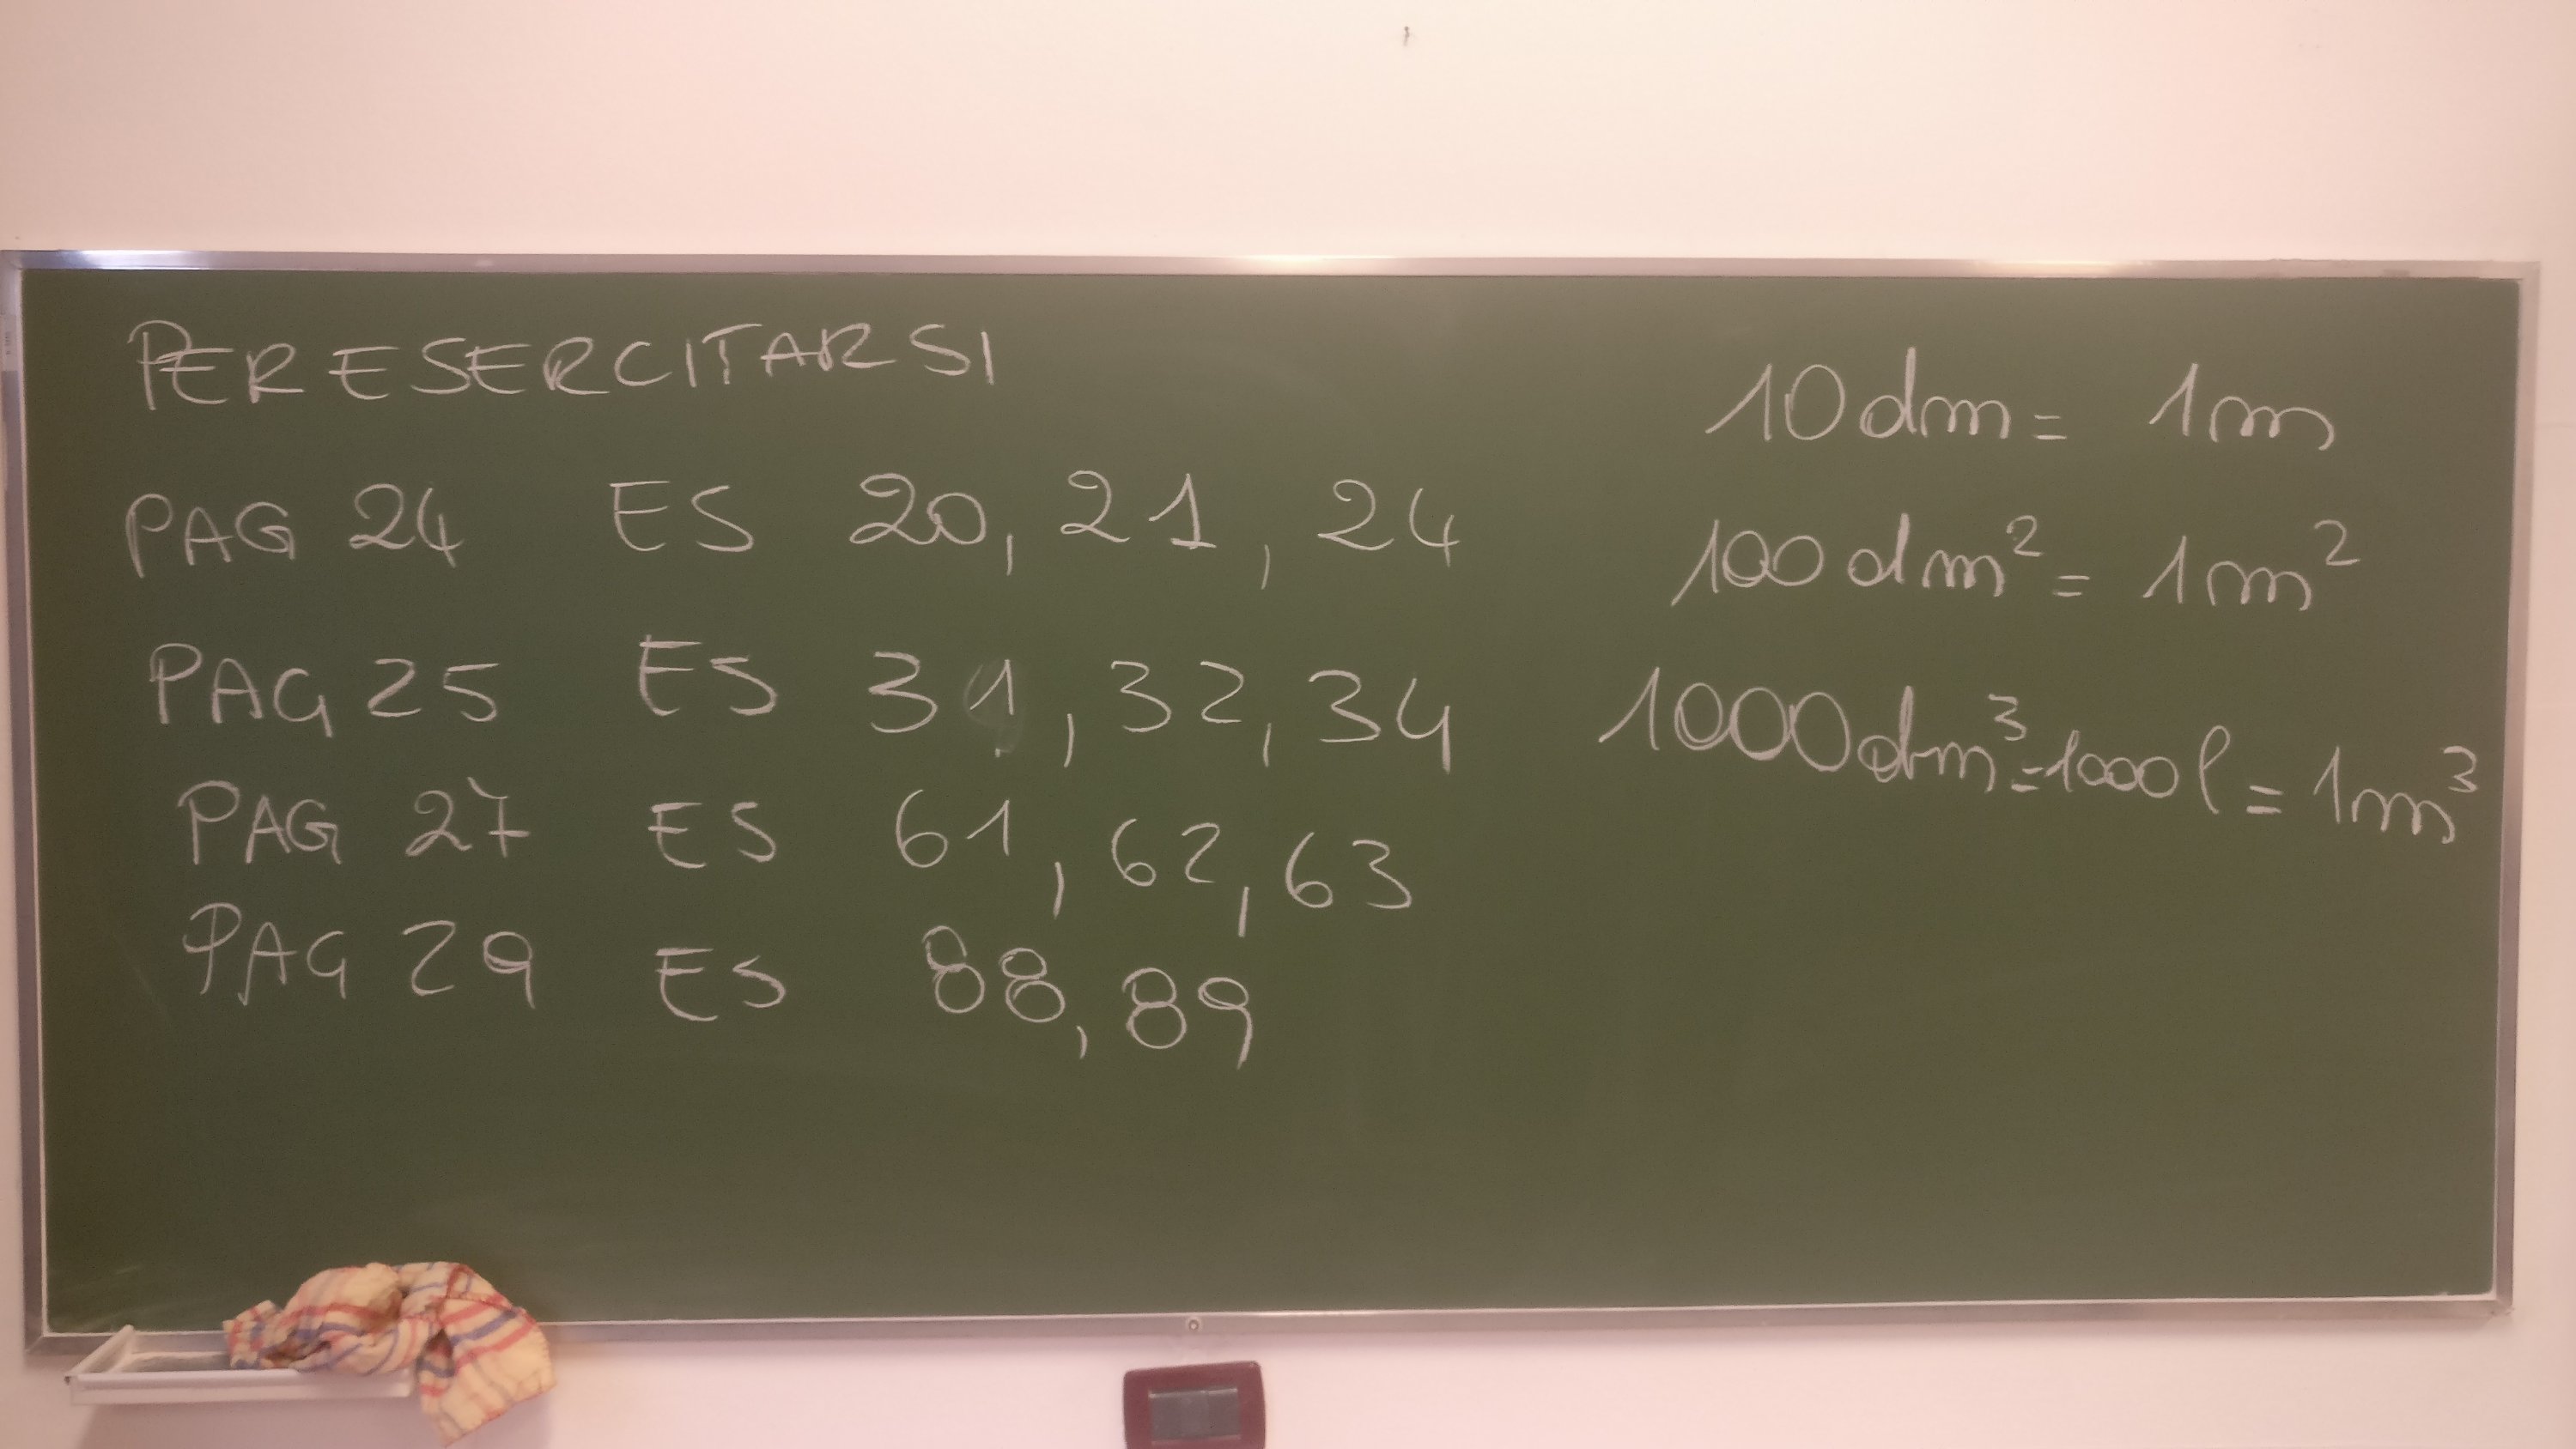 PER ESERCITARSI
PAG 24 ES 20, 21, 24
PAG 25 ES 31, 32, 34
PAG 27 ES 61, 62, 63
PAG 29 ES 88, 89
10 dm = 1m
100 dm² = 1m²
1000dm³=1000l = 1m³